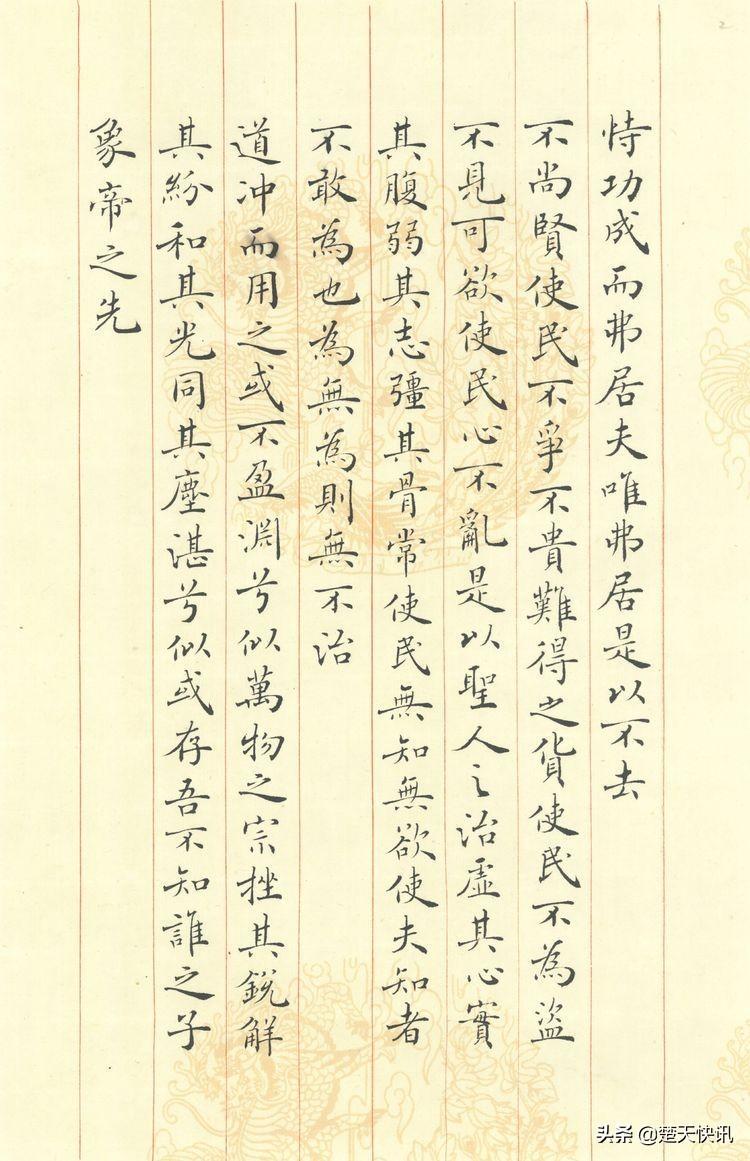 恃功成而弗居夫唯弗居是以不去
不尚賢使民不爭不貴難得之貨使民不為盜
不見可欲使民心不亂是以聖人之治虛其心實
其腹弱其志彊其骨常使民無知無欲使夫知者
不敢為也為無為則無不治
道沖而用之或不盈淵兮似萬物之宗挫其銳解
其紛和其光同其塵湛兮似或存吾不知誰之子
象帝之先
2
头条 @楚天快讯